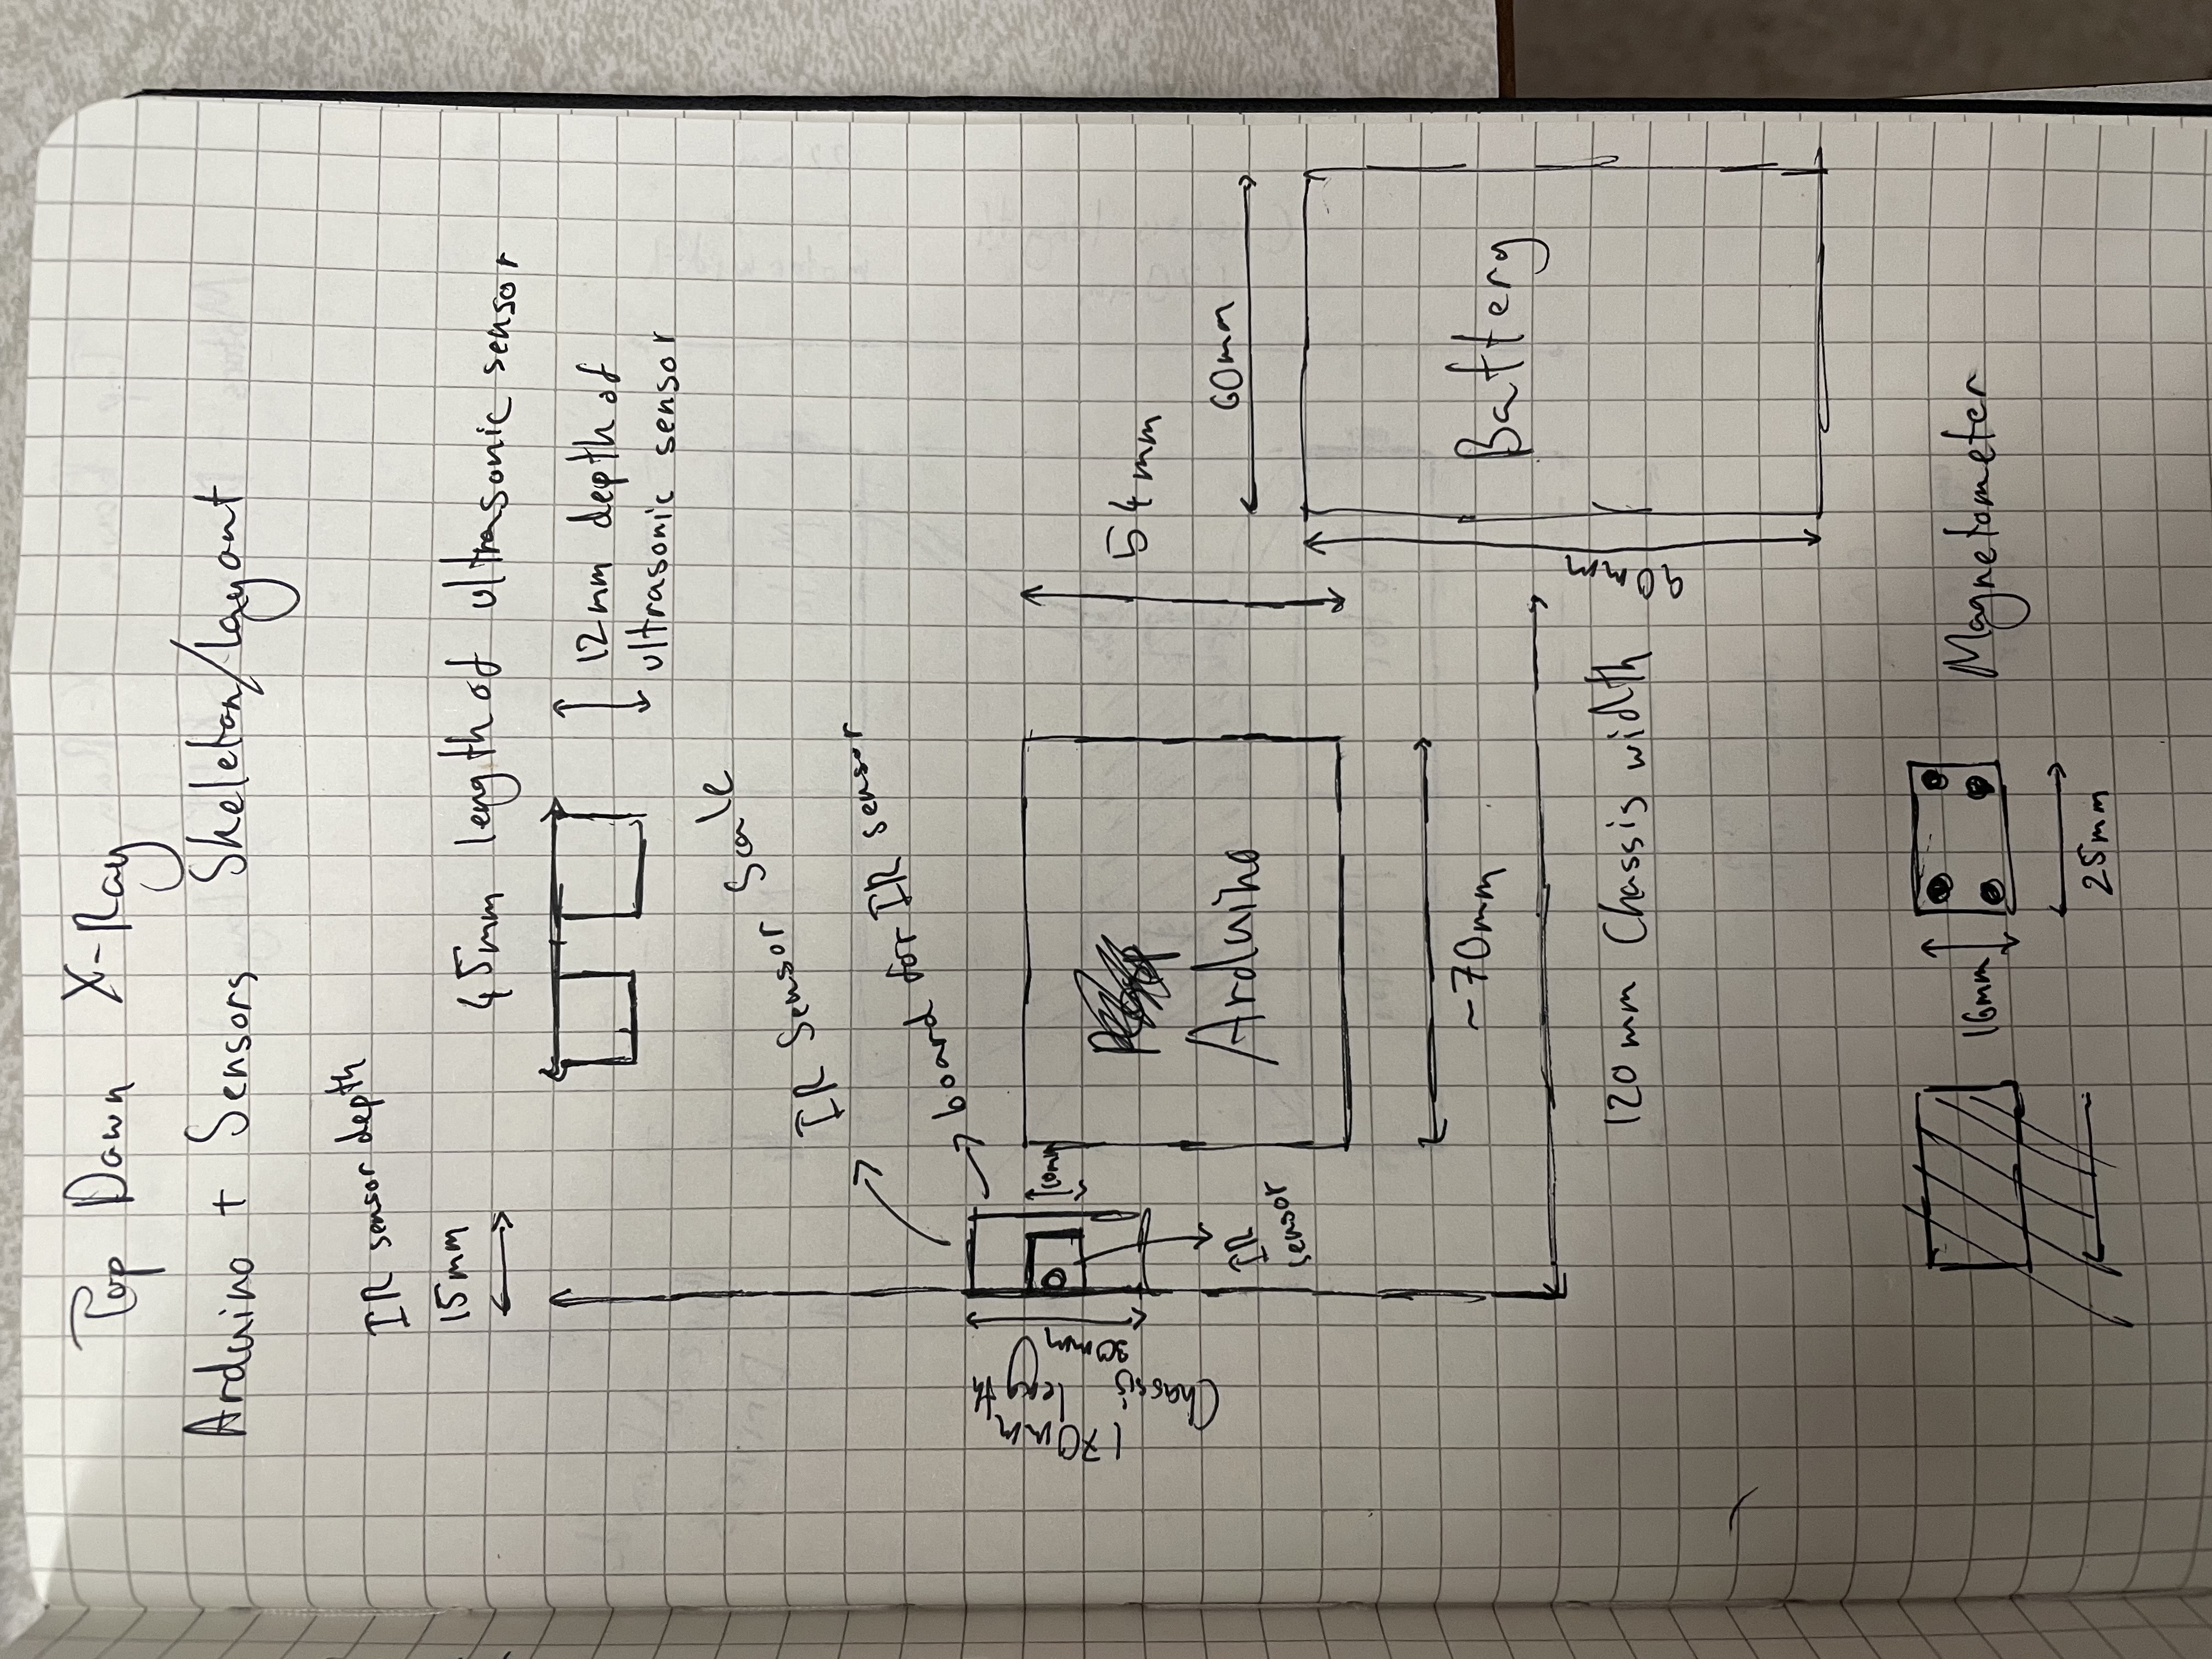 Top Down X-Ray
Arduino + Sensors Skeleton/Layout
IR sensor depth
15mm
45mm length of ultrasonic sensor
12mm depth of
ultrasonic sensor
IR Sensor Scale
board for IR sensor
170mm
Chassis length
30mm
10mm
IR
sensor
Arduino
54mm
~70mm
120mm Chassis width
60mm
90mm
Battery
16mm
25mm
Magnetometer